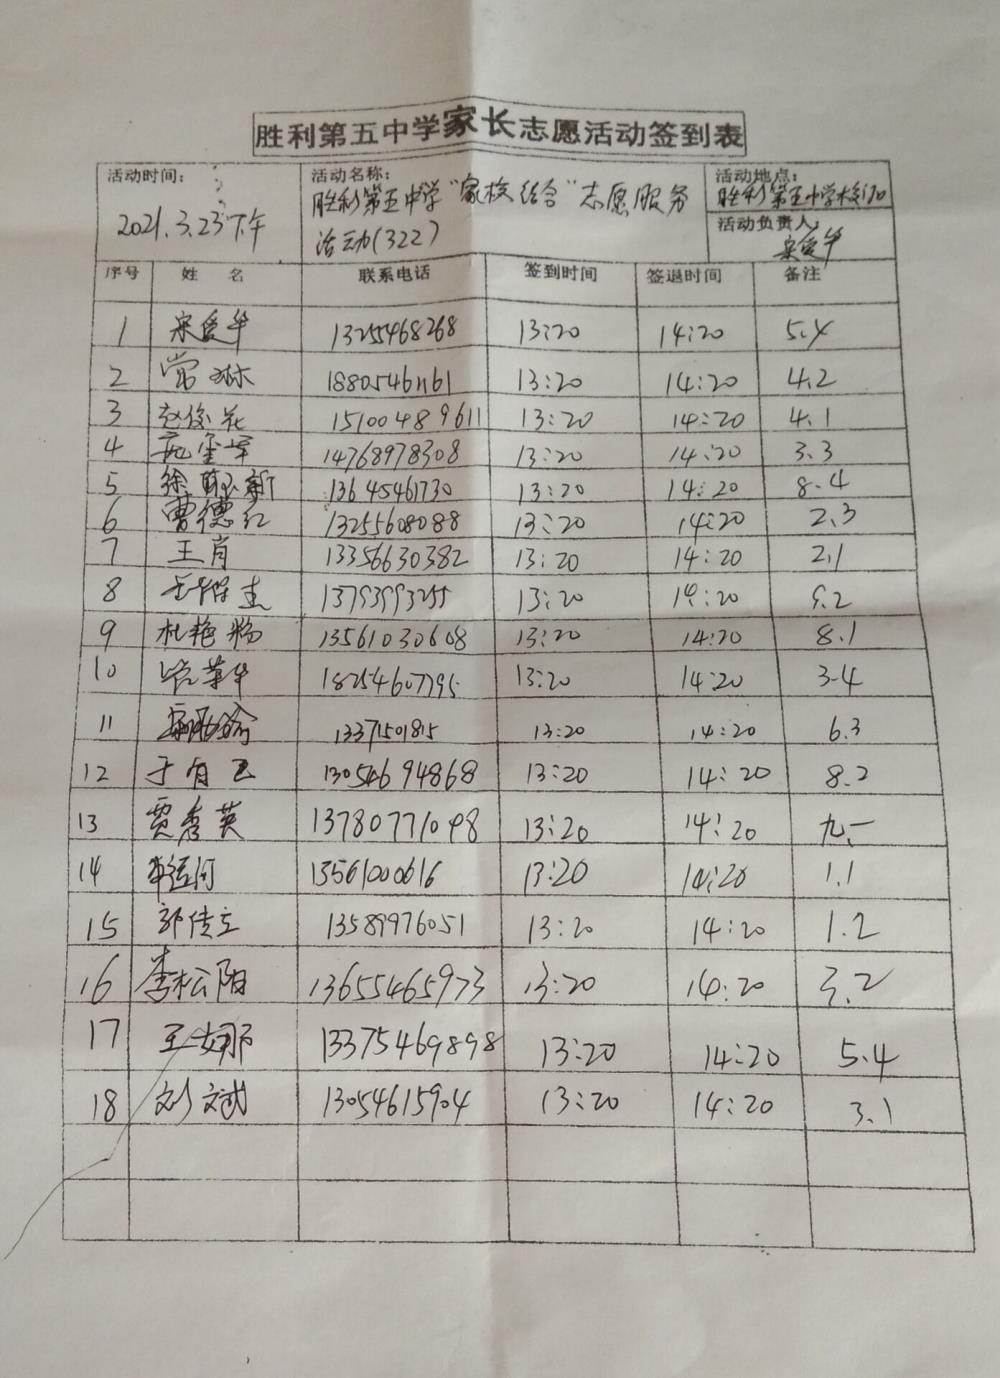 胜利第五中学家长志愿活动签到表
活动时间：
2021.3.23下午
活动名称：
胜利第五中学“家校结合”志愿服务
活动(322)
活动地点：
胜利第五中学校门口
活动负责人：
宋爱华
序号 姓 名 联系电话 签到时间 签退时间 备注
1 宋爱华 13255468268 13:20 14:20 5.4
2 常琳 18805461161 13:20 14:20 4.2
3 赵俊花 15100489611 13:20 14:20 4.1
4 14768978308 13:20 14:20 3.3
5 徐 新 13645461730 13:20 14:20 8.4
6 曹德红 13255608088 13:20 14:20 2.3
7 王肖 13356630382 13:20 14:20 2.1
8 13793993255 13:20 14:20 9.2
9 杜艳粉 13561030608 13:20 14:20 8.1
10 华 18254607795 13:20 14:20 3.4
11 13371501815 13:20 14:20 6.3
12 于有 13054694868 13:20 14:20 8.2
13 贾秀英 13780771098 13:20 14:20 九.一
14 13561000616 13:20 14:20 1.1
15 郭传立 13589976051 13:20 14:20 1.2
16 李松阳 13655465973 13:20 14:20 3.2
17 王娜 13375469898 13:20 14:20 5.4
18 刘文斌 13054615904 13:20 14:20 3.1